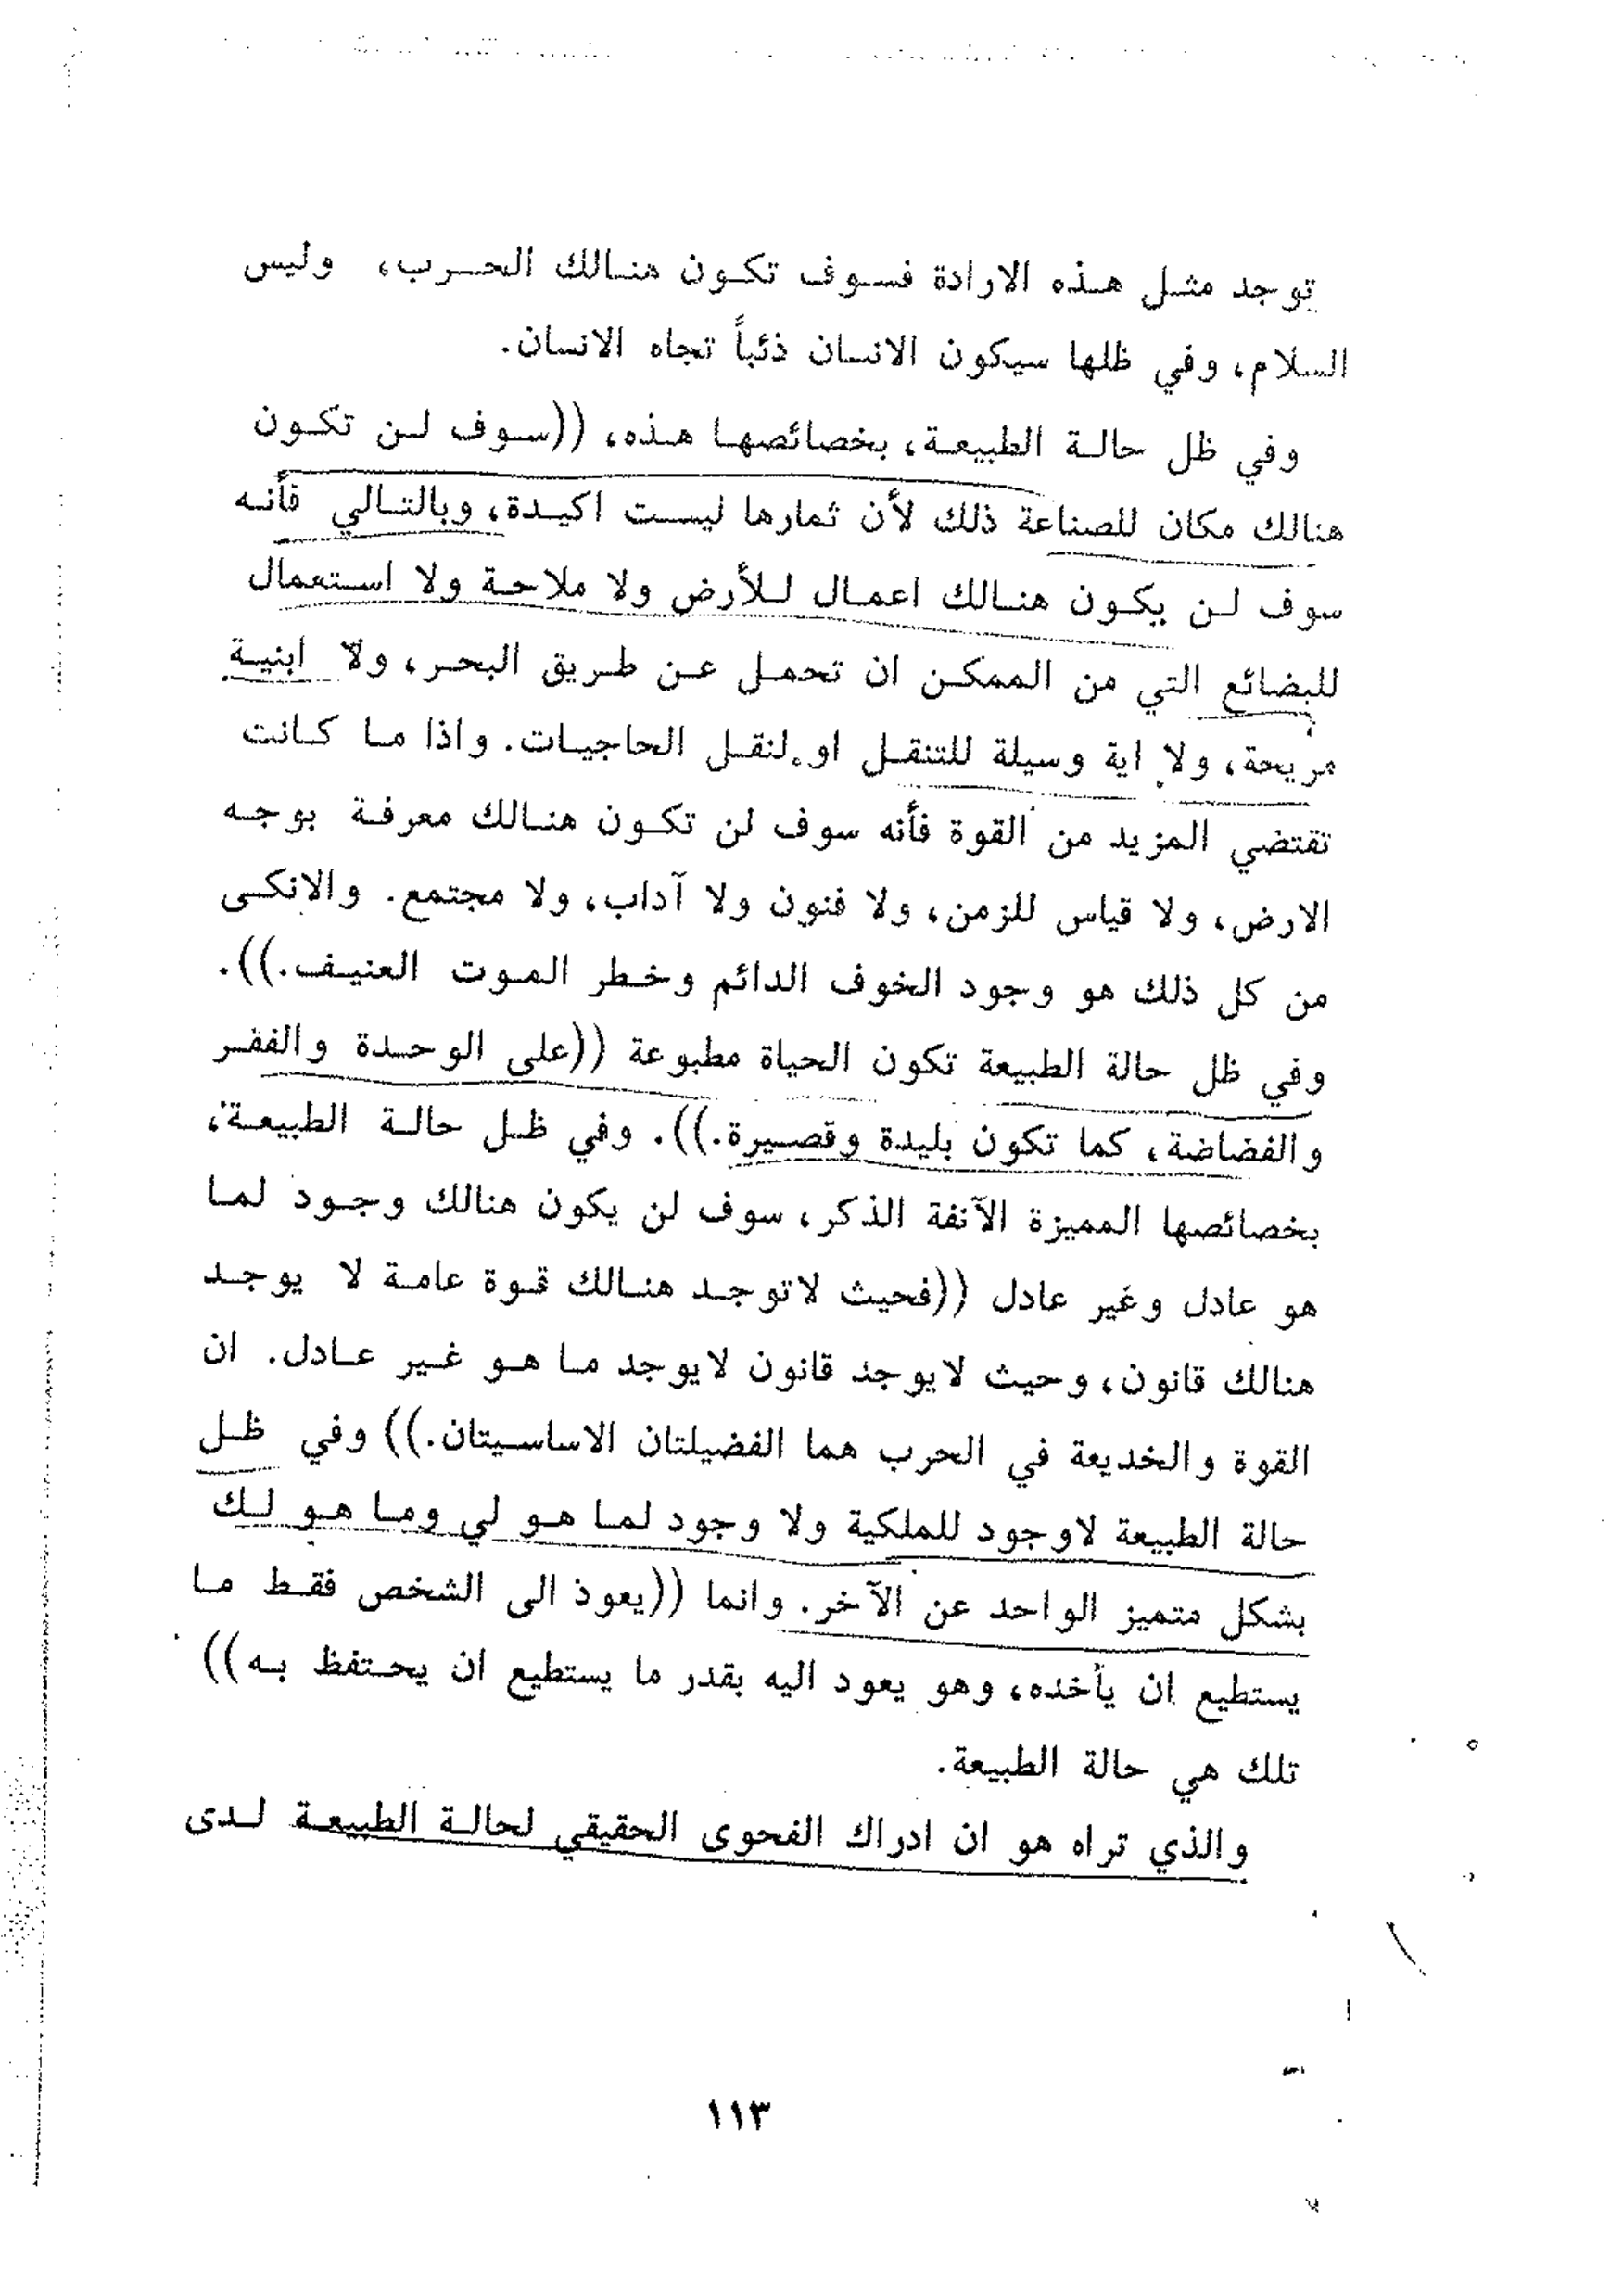 توجد مثل هذه الارادة فسوف تكون هنالك الحرب، وليس
السلام، وفي ظلها سيكون الانسان ذئباً تجاه الانسان.
وفي ظل حالة الطبيعة، بخصائصها هذه، ((سوف لن تكون
هنالك مكان للصناعة ذلك لأن ثمارها ليست اكيدة، وبالتالي فأنه
سوف لن يكون هنالك اعمال للأرض ولا ملاحة ولا استعمال
للبضائع التي من الممكن ان تحمل عن طريق البحر، ولا ابنية
مريحة، ولا اية وسيلة للتنقل او لنقل الحاجيات. واذا ما كانت
تقتضي المزيد من القوة فأنه سوف لن تكون هنالك معرفة بوجه
الارض، ولا قياس للزمن، ولا فنون ولا آداب، ولا مجتمع. والانكى
من كل ذلك هو وجود الخوف الدائم وخطر الموت العنيف.)).
وفي ظل حالة الطبيعة تكون الحياة مطبوعة ((على الوحدة والفقر
والفضاضة، كما تكون بليدة وقصيرة.)). وفي ظل حالة الطبيعة،
بخصائصها المميزة الآنفة الذكر، سوف لن يكون هنالك وجود لما
هو عادل وغير عادل ((فحيث لاتوجد هنالك قوة عامة لا يوجد
هنالك قانون، وحيث لايوجد قانون لايوجد ما هو غير عادل. ان
القوة والخديعة في الحرب هما الفضيلتان الاساسيتان.)) وفي ظل
حالة الطبيعة لاوجود للملكية ولا وجود لما هو لي وما هو لك
بشكل متميز الواحد عن الآخر. وانما ((يعوذ الى الشخص فقط ما
يستطيع ان يأخذه، وهو يعود اليه بقدر ما يستطيع ان يحتفظ به))
تلك هي حالة الطبيعة.
والذي تراه هو ان ادراك الفحوى الحقيقي لحالة الطبيعة لدى
١١٣